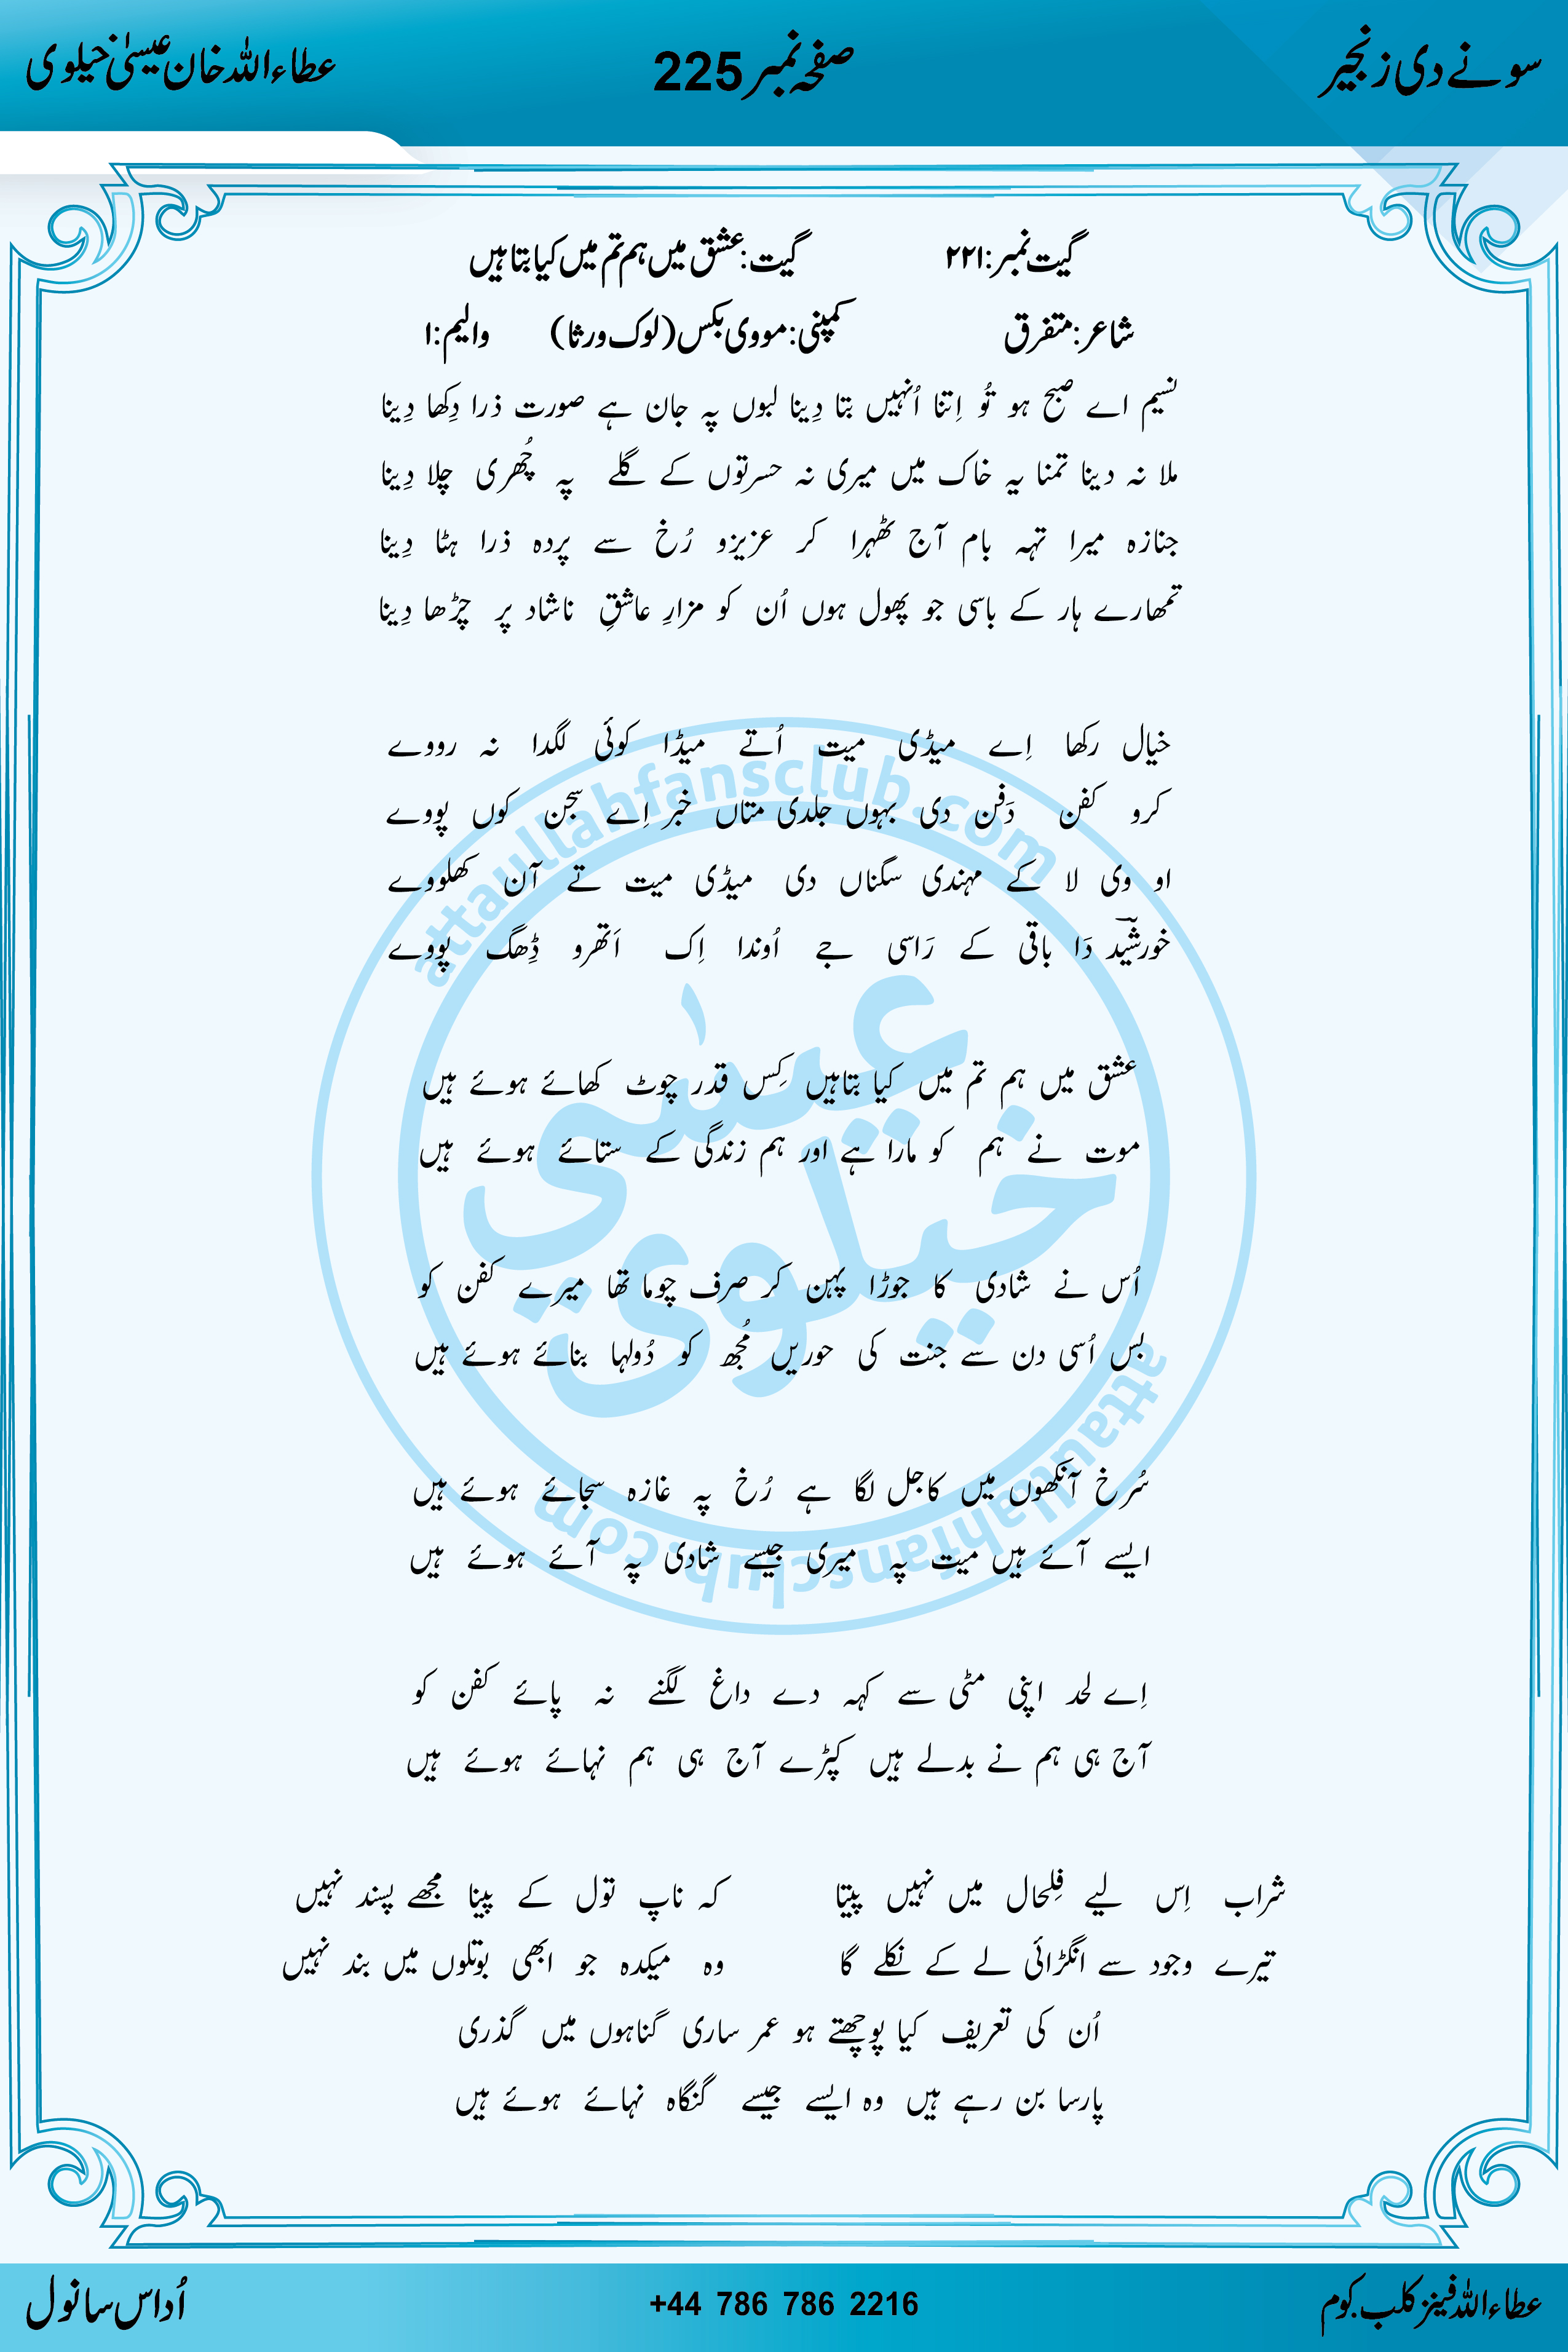 سونے دی زنجیر
صفحہ نمبر 225
عطاءاللہ خان عیسیٰ خیلوی
گیت نمبر:۲۲۱ گیت: عشق میں ہم تم میں کیا بتاہیں
شاعر: متفرق کمپنی: مووی بکس (لوک ورثا) والیم:۱
نسیم اے صبح ہو تُو اِتنا اُنہیں بتا دِینا لبوں پہ جان ہے صورت ذرا دِکھا دِینا
ملا نہ دینا تمنا یہ خاک میں میری نہ حسرتوں کے گلے پہ چُھری چلا دِینا
جنازہ میرا تہہ بام آج ٹھہرا کر عزیزو رُخ سے پردہ ذرا ہٹا دِینا
تمھارے ہار کے باسی جو پھول ہوں اُن کو مزارِ عاشقِ ناشاد پر چڑھا دِینا
خیال رکھا اِے میڈی میت اُتے میڈا کوئی لگدا نہ رووے
کرو کفن دَفن دی بہوں جلدی متاں خبر اِے سجن کوں پووے
او وی لا کے مہندی سگناں دی میڈی میت تے آن کھلووے
خورشیؔد دَا باقی کے رَاسی جے اُوندا اِک اَتھرو ڈِھگ پووے
عشق میں ہم تم میں کیا بتاہیں کِس قدر چوٹ کھائے ہوئے ہیں
موت نے ہم کو مارا ہے اور ہم زندگی کے ستائے ہوئے ہیں
اُس نے شادی کا جوڑا پہن کر صرف چوما تھا میرے کفن کو
بس اُسی دن سے جنت کی حوریں مُجھ کو دُولہا بنائے ہوئے ہیں
سُرخ آنکھوں میں کاجل لگا ہے رُخ پہ غازہ سجائے ہوئے ہیں
ایسے آئے ہیں میت پہ میری جیسے شادی پہ آئے ہوئے ہیں
اِے لحد اپنی مٹی سے کہہ دے داغ لگنے نہ پائے کفن کو
آج ہی ہم نے بدلے ہیں کپڑے آج ہی ہم نہائے ہوئے ہیں
شراب اِس لیے فِلحال میں نہیں پیتا کہ ناپ تول کے پینا مجھے پسند نہیں
تیرے وجود سے انگڑائی لے کے نکلے گا وہ میکدہ جو ابھی بوتلوں میں بند نہیں
اُن کی تعریف کیا پوچھتے ہو عمر ساری گناہوں میں گذری
پارسا بن رہے ہیں وہ ایسے جیسے گنگاہ نہائے ہوئے ہیں
attaullahfansclub.com
عیسٰی
خیلوی
attaullahfansclub.com
عطاءاللہ فینز کلب.کوم
+44 786 786 2216
اُداس سانول